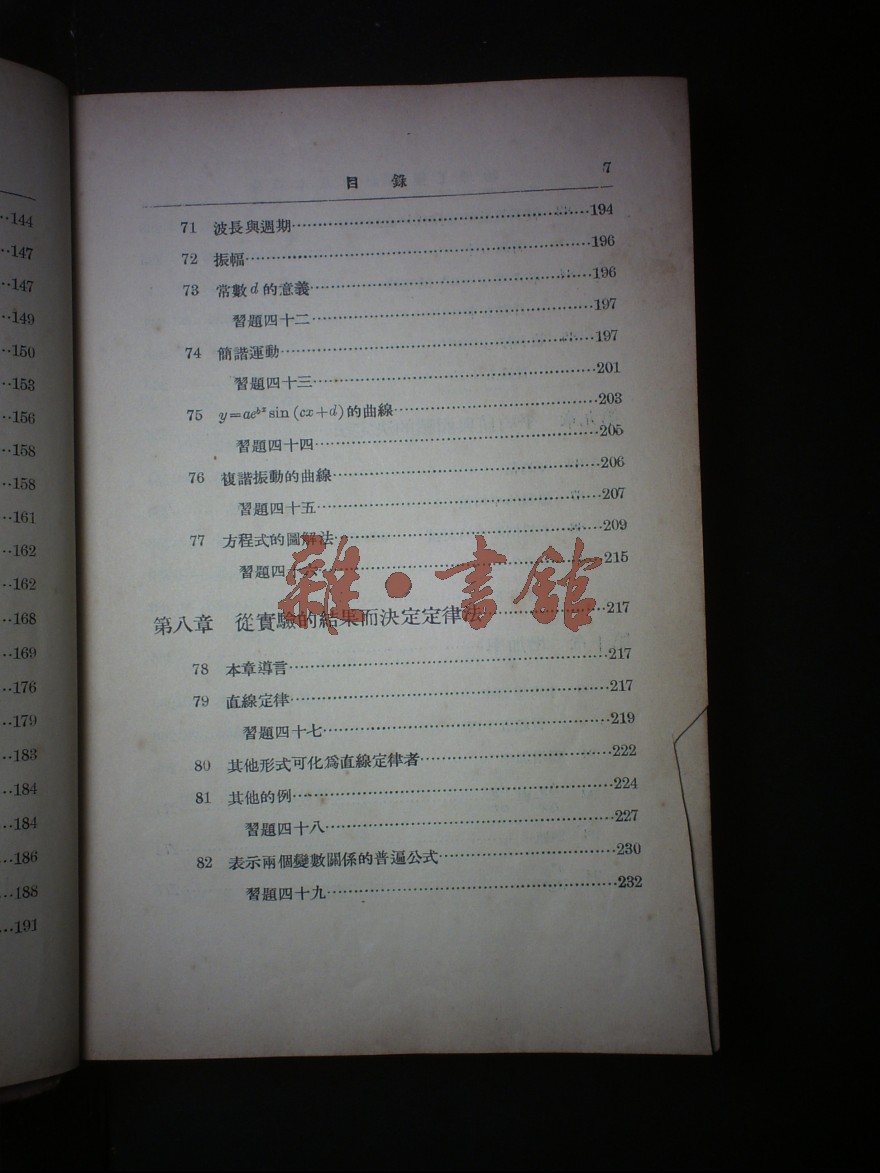 …144
…147
…147
…149
…150
…153
…156
…158
…158
…161
…162
…162
…168
…169
…176
…179
…183
…184
…184
…186
…188
…191
目錄 7
71 波長與週期……194
72 振幅……196
73 常數 d 的意義……196
習題四十二……197
74 簡諧運動……197
習題四十三……201
75 y=ae^{bx} sin (cx+d) 的曲線……203
習題四十四……205
76 複諧振動的曲線……206
習題四十五……207
77 方程式的圖解法……209
習題四十六……215
第八章 從實驗的結果而決定定律法……217
78 本章導言……217
79 直線定律……217
習題四十七……219
80 其他形式可化爲直線定律者……222
81 其他的例……224
習題四十八……227
82 表示兩個變數關係的普遍公式……230
習題四十九……232
雜·書館